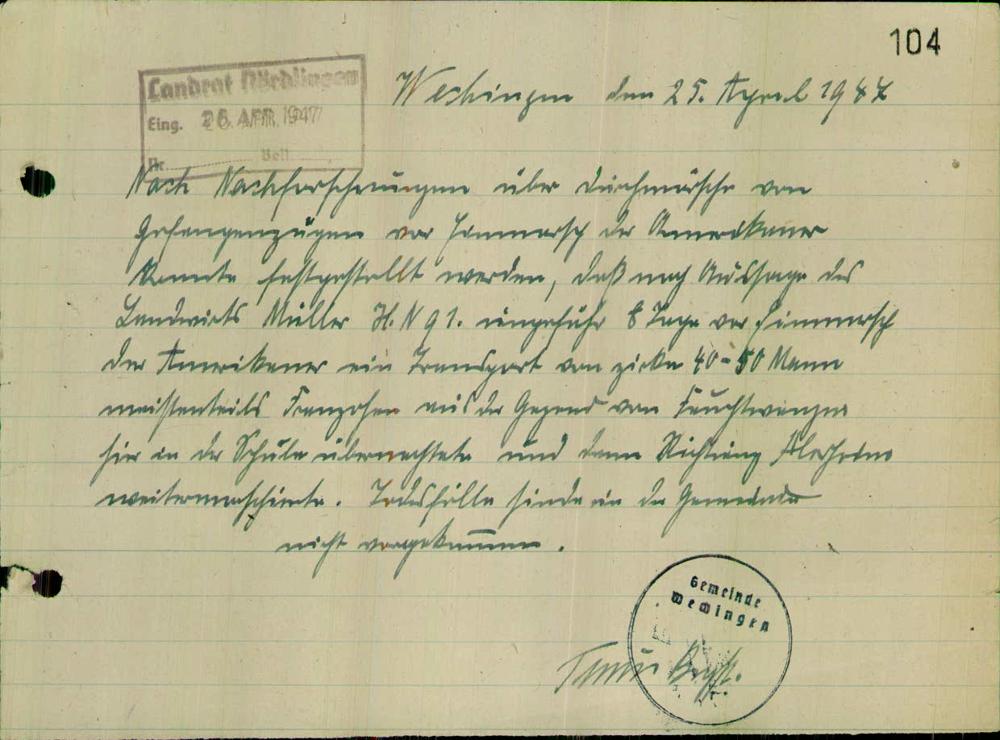 104
Landrat Nördlingen
Eing. 26. APR. 1947
Nr. Beil.
Wechingen den 25. April 1947
Nach Nachforschungen über Durchmärsche von
Gefangenzügen vor Einmarsch der Amerikaner
konnte festgestellt werden, daß nach Aussage des
Landwirts Müller H. N 91. ungefähr 8 Tage vor Einmarsch
der Amerikaner ein Transport von zirka 40-50 Mann
meistenteils Franzosen aus der Gegend von Feuchtwangen
hier in der Schule übernachtete und dann Richtung Alerheim
weitermarschierte. Todesfälle sind in der Gemeinde
nicht vorgekommen.
Gemeinde
Wechingen
Bgst.